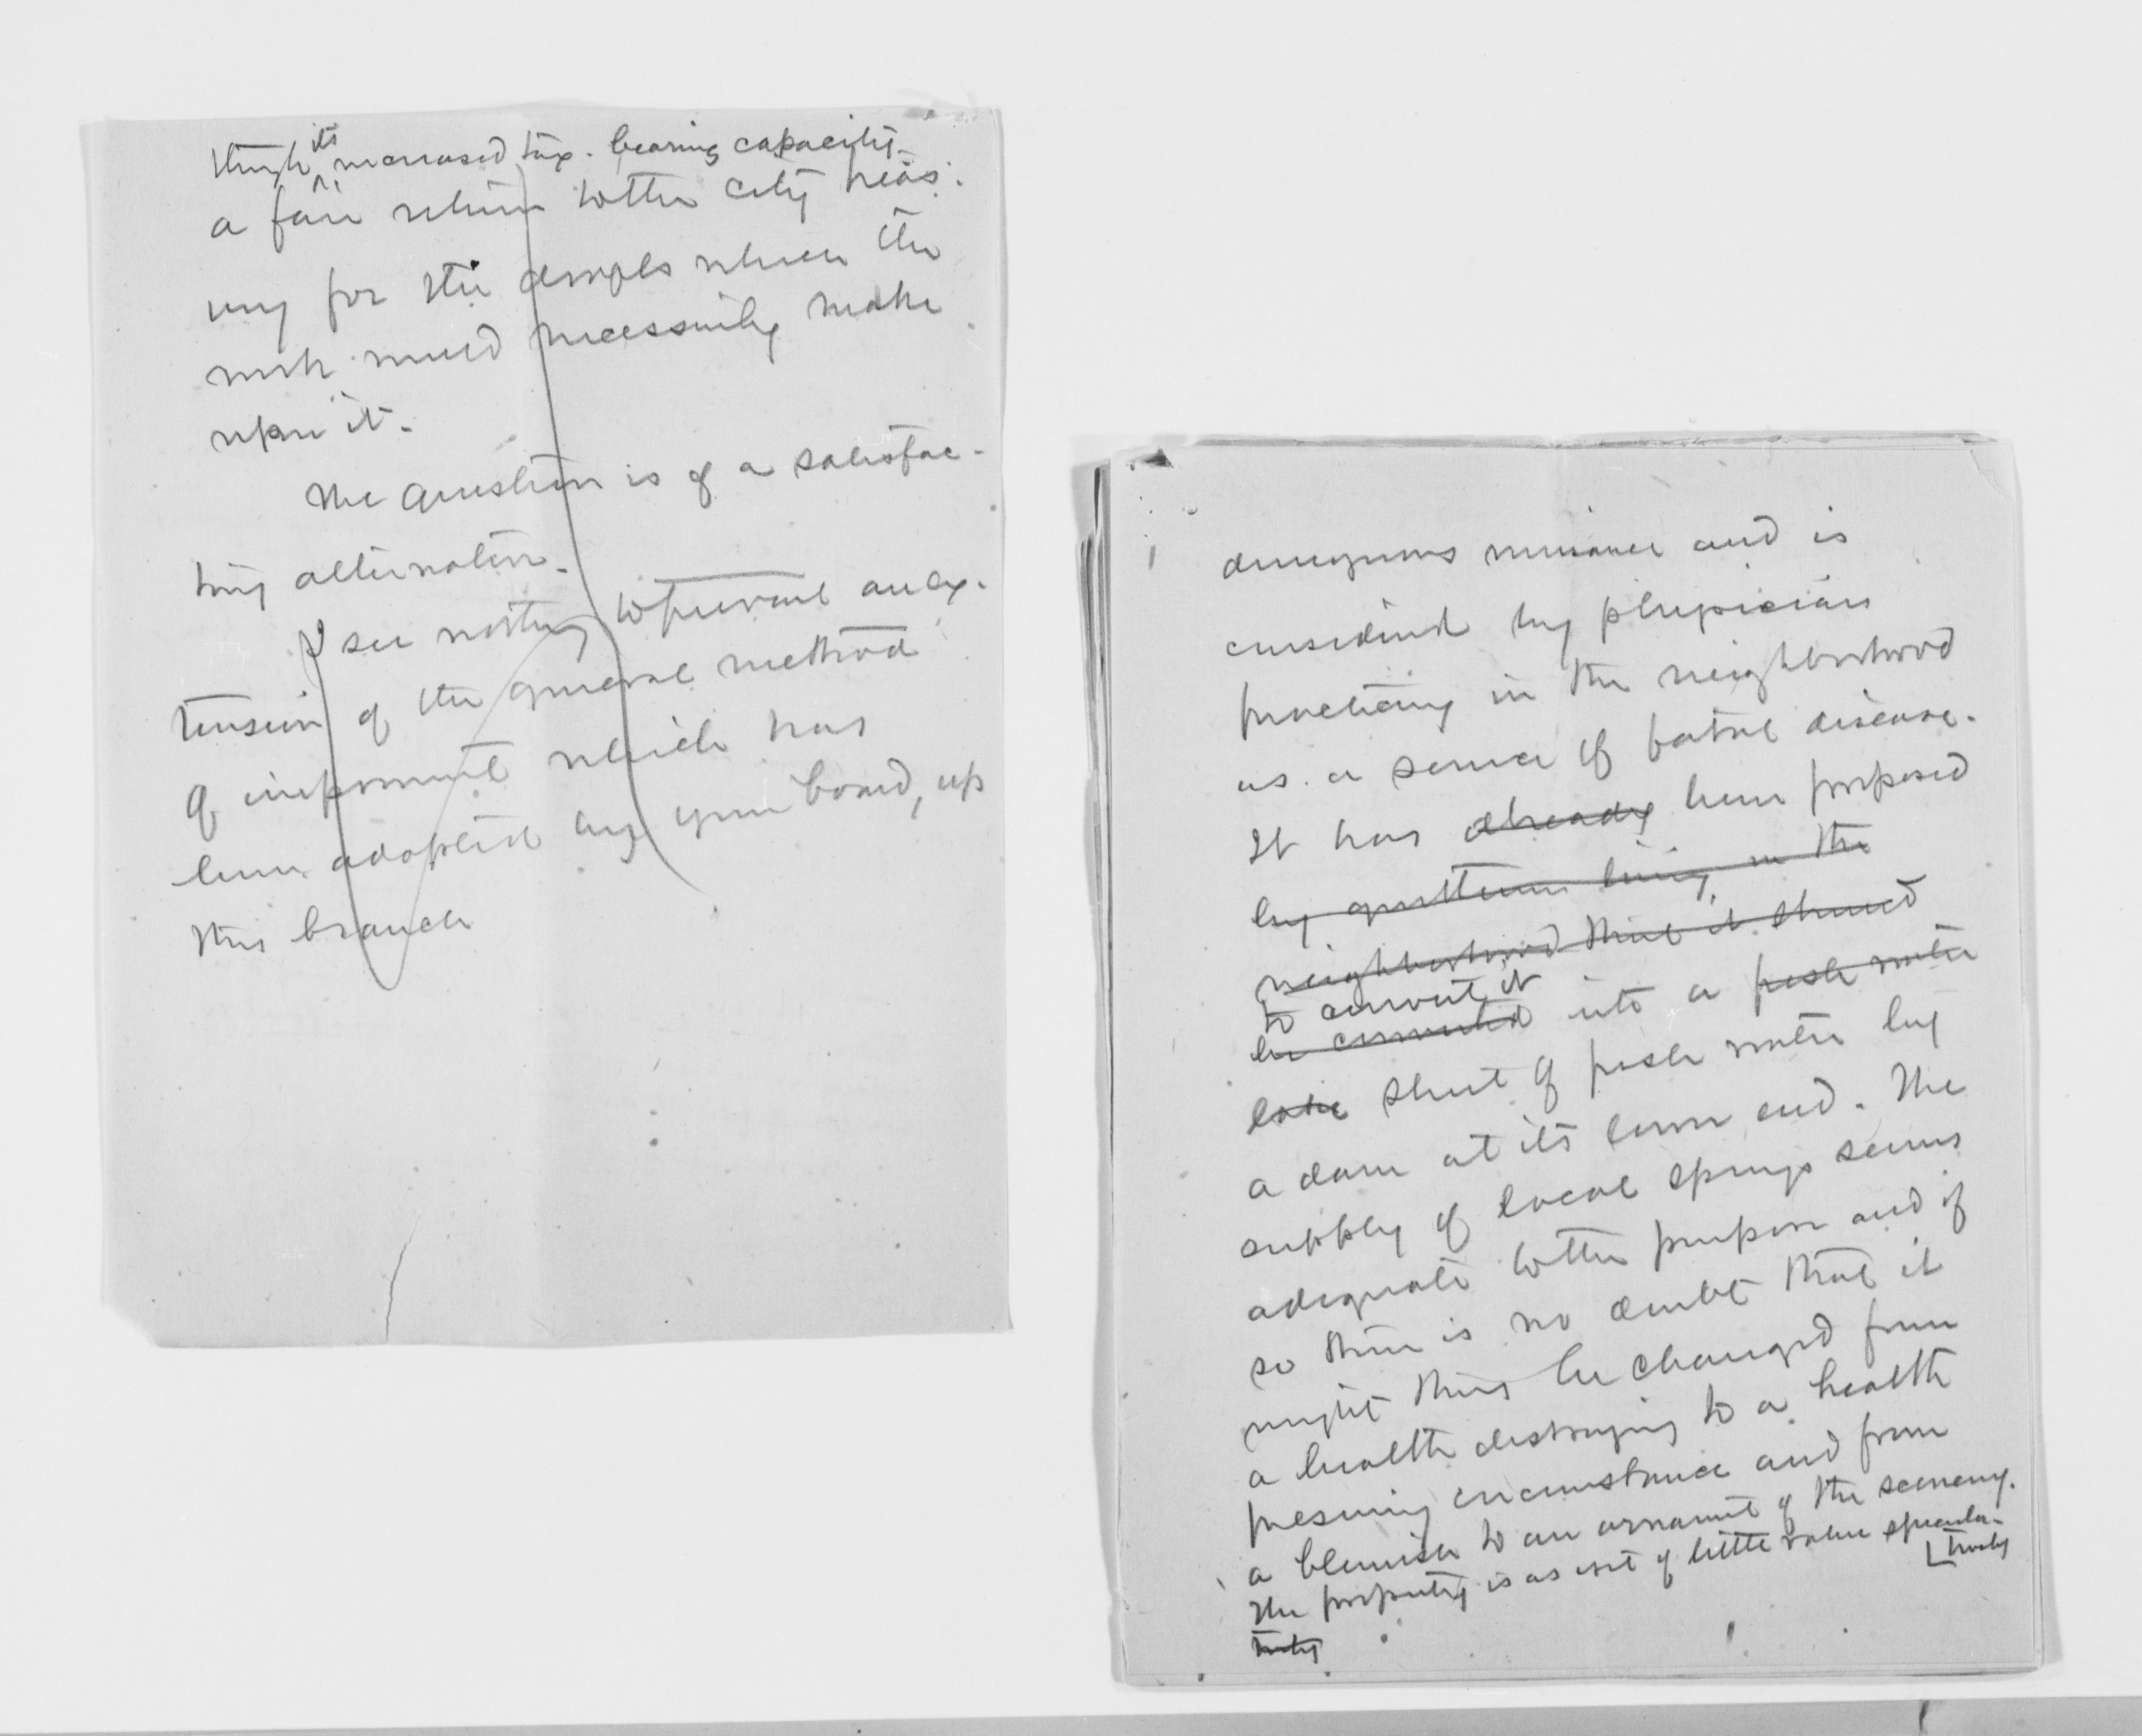 through its increased tax-bearing capacity
a fair return to the city treas-
ury for the
work would necessarily make
upon it.
The question is of a satisfac-
tory alternative.
I see nothing to prevent an ex-
tension of the general method
of improvement which has
been adopted by your board, up
this branch
dangerous nuisance and is
considered by physicians
practicing in the neighborhood
as a source of fatal disease.
It has already been proposed
by gentlemen living in the
neighborhood that it should
to convert it
be converted into a fresh water
lake sheet of fresh water by
a dam at its lower end. The
supply of local springs seems
adequate to the purpose and if
so there is no doubt that it
might thus be changed from
a health destroying to a health
preserving circumstance and from
a blemish to an ornament of the scenery.
The property is as yet of little value specula-
tively
tively